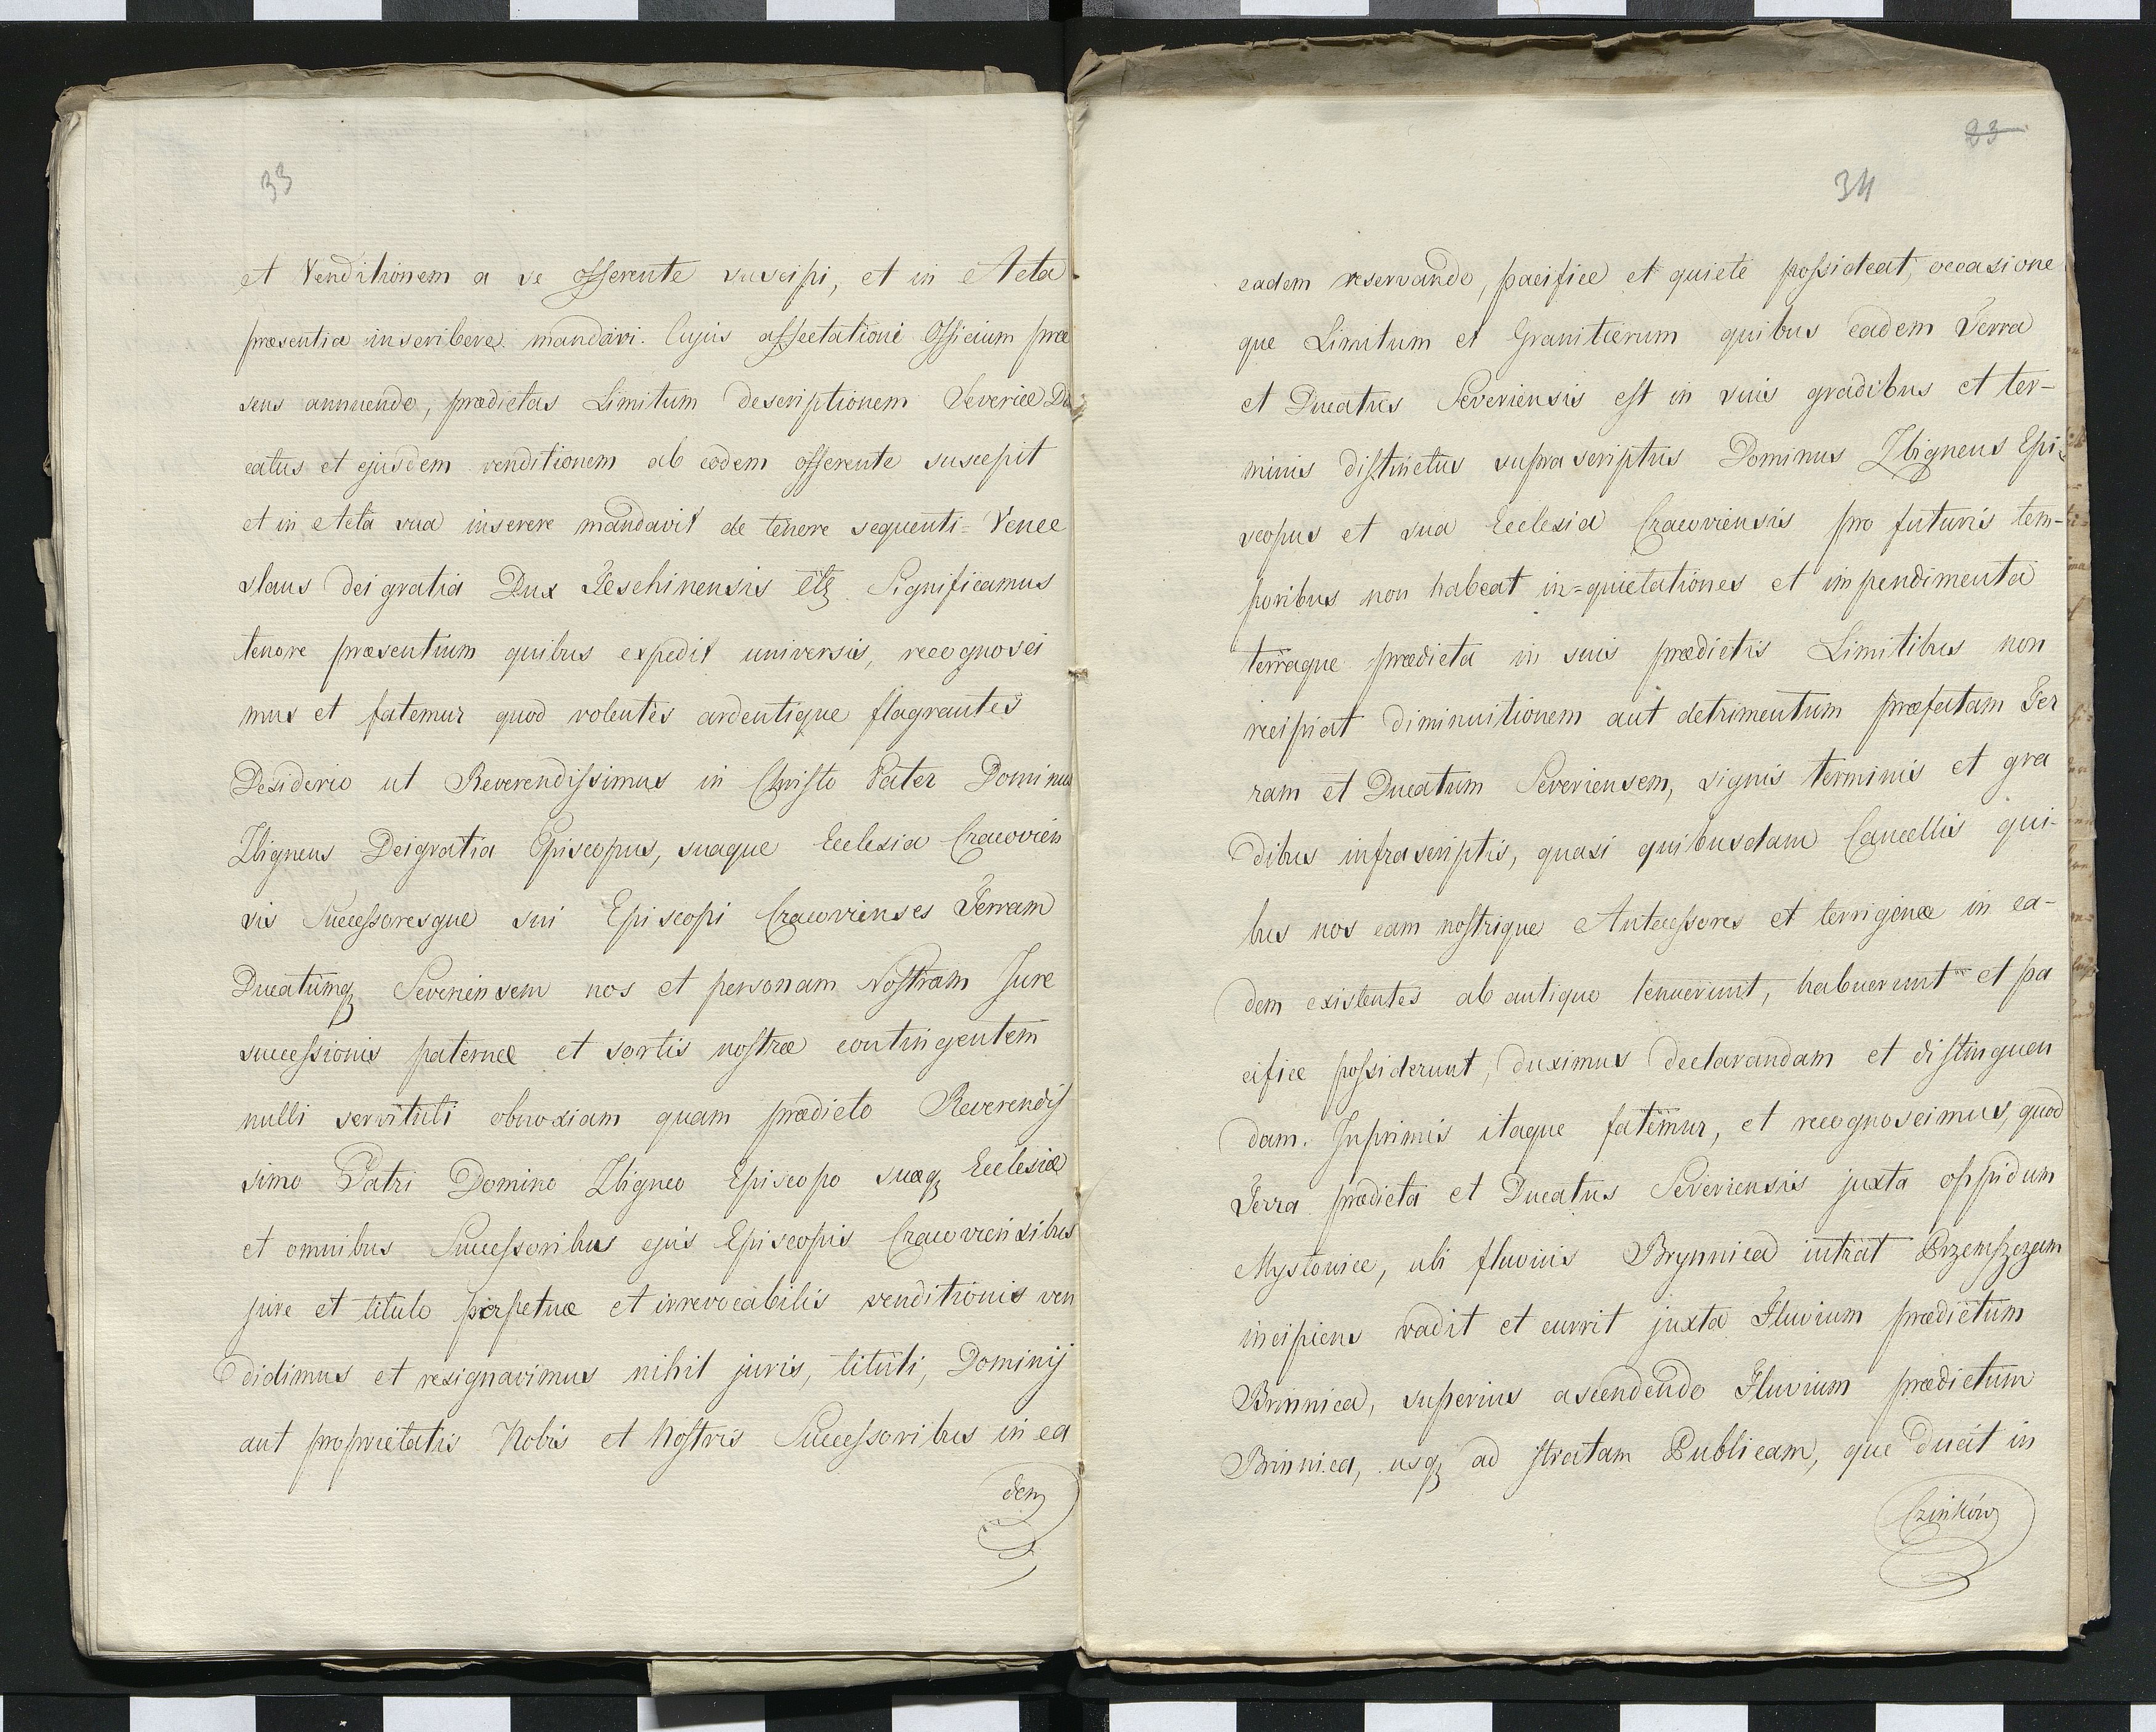 33
et Venditionem a se offerente suscipi, et in Acta
præsentia inscribere mandari. Cujus affectationi Officium præ
sens annuendo, prædictas Limitum descriptionem Severiæ Du
catus et ejusdem venditionem ab eodem offerente suscepit
et in Acta sua inserere mandavit de tenore sequenti = Vence
slaus Dei gratia Dux Teschinensis etz. Significamus
tenore præsentium quibus expedit universis, recognosci
mus et fatemur quod volentes ardentique flagrantes
Desiderio ut Reverendissimus in Christo Pater Dominus
Zbigneus Dei gratia Episcopus, suaque Ecclesia Cracovien
sis Successoresque sui Episcopi Cracovienses Terram
Ducatumq Severiensem nos et personam Nostram Jure
successionis paternæ et sortis nostræ contingentem
nulli servituti obnoxiam quam prædicto Reverendis
simo Patri Domino Zbigneo Episcopo suæq Ecclesiæ
et omnibus Successoribus ejus Episcopis Cracoviensibus
jure et titulo perpetuæ et irrevocabilis venditionis ven
didimus et resignavimus nihil juris, tituli, Dominij
aut proprietatis Nobis et Nostris Successoribus in ea
dem
23
34
eadem reservando, pacifice et quiete possideat, occasione
que Limitum et Granitierum quibus eadem Terra
et Ducatus Severiensis est in suis gradibus et ter-
minis distinctus supra scriptus Dominus Zbigneus Epi-
scopus et sua Ecclesia Cracoviensis pro futuris tem-
poribus non habeat in=quietationes et impendimenta
terraque prædicta in suis prædictis Limitibus non
recipiat diminuitionem aut detrimentum præfatam Ter
ram et Ducatum Severiensem, signis terminis et gra
dibus infrascriptis, quasi quibusdam Cancellis qui-
bus nos eam nostrique Antecessores et terrigenæ in ea-
dem existentes ab antiquo tenuerunt, habuerunt et pa
cifice possiderunt, duximus declarandam et distinguen
dam. Inprimis itaque fatemur, et recognoscimus, quod
Terra prædicta et Ducatus Severiensis juxta oppidum
Mysłowice, ubi fluvius Brynnica intrat Przemszczam
incipiens vadit et currit juxta Fluvium prædictum
Brinnica, superius ascendendo Fluvium prædictum
Brinnica, usq ad stratam Publicam, que ducit in
Czinków